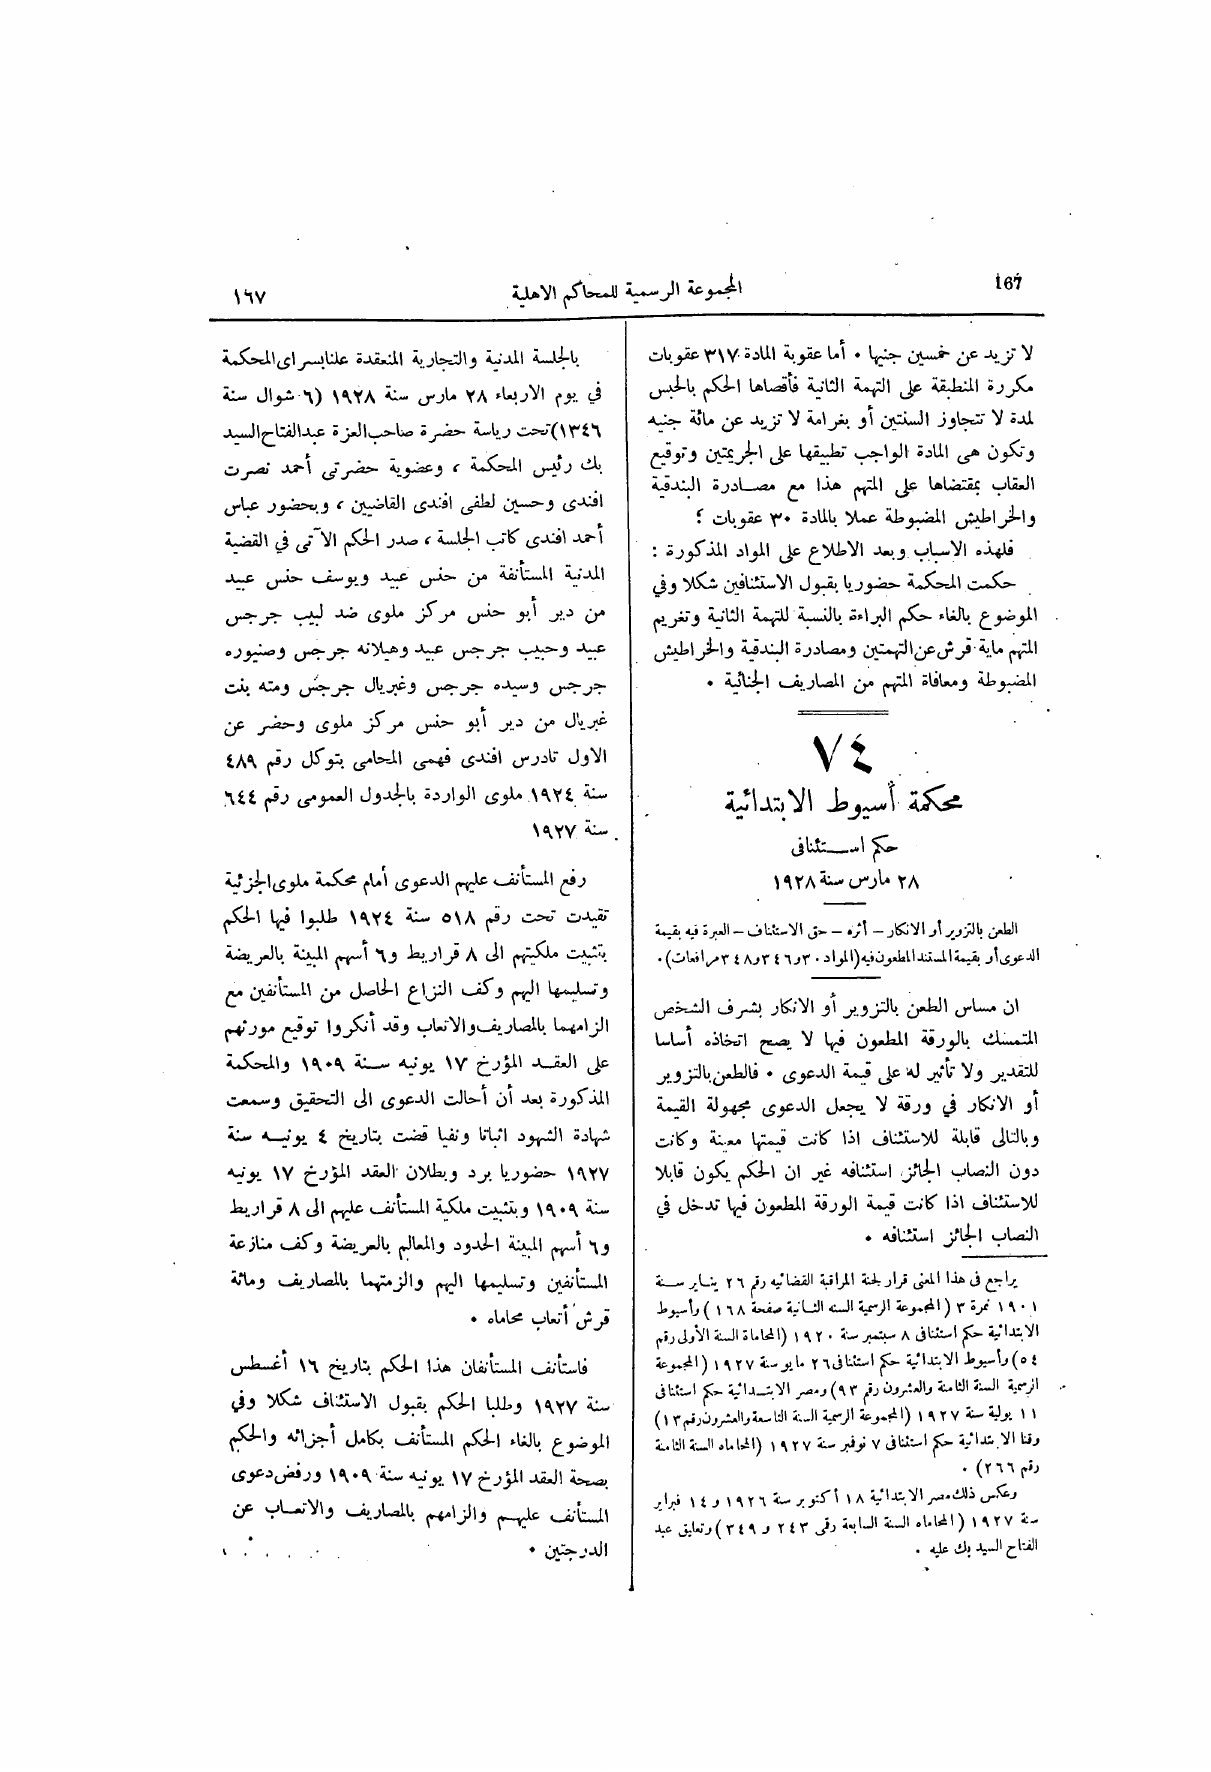 167
المجموعة الرسمية للمحاكم الاهلية
١٦٧
لا تزيد عن خمسين جنيها . أما عقوبة المادة ٣١٧ عقوبات
مكررة المنطبقة على التهمة الثانية فأقصاها الحكم بالحبس
لمدة لا تتجاوز السنتين أو بغرامة لا تزيد عن مائة جنيه
وتكون هى المادة الواجب تطبيقها على الجريمتين وتوقيع
العقاب بمقتضاها على المتهم هذا مع مصادرة البندقية
والخراطيش المضبوطة عملا بالمادة ٣٠ عقوبات ؛
فلهذه الاسباب وبعد الاطلاع على المواد المذكورة :
حكمت المحكمة حضوريا بقبول الاستئنافين شكلا وفي
الموضوع بالغاء حكم البراءة بالنسبة للتهمة الثانية وتغريم
المتهم ماية قرش عن التهمتين ومصادرة البندقية والخراطيش
المضبوطة ومعافاة المتهم من المصاريف الجنائية .
٧٤
محكمة أسيوط الابتدائية
حكم استئنافى
٢٨ مارس سنة ١٩٢٨
الطعن بالتزوير أو الانكار – أثره – حق الاستئناف – العبرة فيه بقيمة
الدعوى أو بقيمة المستند المطعون فيه (المواد ٣٠ و٣٤٦ و٣٤٨ مرافعات) .
ان مساس الطعن بالتزوير أو الانكار بشرف الشخص
المتمسك بالورقة المطعون فيها لا يصح اتخاذه أساسا
للتقدير ولا تأثير له على قيمة الدعوى . فالطعن بالتزوير
أو الانكار في ورقة لا يجعل الدعوى مجهولة القيمة
وبالتالى قابلة للاستئناف اذا كانت قيمتها معينة وكانت
دون النصاب الجائز استئنافه غير ان الحكم يكون قابلا
للاستئناف اذا كانت قيمة الورقة المطعون فيها تدخل في
النصاب الجائز استئنافه .
يراجع فى هذا المعنى قرار لجنة المراقبة القضائيه رقم ٢٦ يناير سنة
١٩٠١ نمرة ٣ (المجموعة الرسمية السنه الثانية صفحة ١٦٨) وأسيوط
الابتدائية حكم استئنافى ٨ سبتمبر سنة ١٩٢٠ (المحاماة السنة الأولى رقم
٥٤) وأسيوط الابتدائية حكم استئنافى ٢٦ مايو سنة ١٩٢٧ (المجموعة
الرسمية السنة الثامنة والعشرون رقم ٩٣) ومصر الابتدائية حكم استئنافى
١١ يولية سنة ١٩٢٧ (المجموعة الرسمية السنة التاسعة والعشرون رقم ١٣)
وقنا الابتدائية حكم استئنافى ٧ نوفمبر سنة ١٩٢٧ (المحاماه السنة الثامنة
رقم ٢٦٦) .
وعكس ذلك مصر الابتدائية ١٨ أكتوبر سنة ١٩٢٦ و ١٤ فبراير
سنة ١٩٢٧ (المحاماه السنة السابعة رقمى ٢٤٣ و ٣٤٩) وتعليق عبد
الفتاح السيد بك عليه .
بالجلسة المدنية والتجارية المنعقدة علنا بسراى المحكمة
في يوم الاربعاء ٢٨ مارس سنة ١٩٢٨ (٦ شوال سنة
١٣٤٦) تحت رياسة حضرة صاحب العزة عبد الفتاح السيد
بك رئيس المحكمة ، وعضوية حضرتى أحمد نصرت
افندى وحسين لطفى افندى القاضيين ، وبحضور عباس
أحمد افندى كاتب الجلسة ، صدر الحكم الآتى في القضية
المدنية المستأنفة من حنس عبيد ويوسف حنس عبيد
من دير أبو حنس مركز ملوى ضد لبيب جرجس
عبيد وحبيب جرجس عبيد وهيلانه جرجس وصنيوره
جرجس وسيده جرجس وغبريال جرجس ومته بنت
غبريال من دير أبو حنس مركز ملوى وحضر عن
الاول تادرس افندى فهمى المحامى بتوكل رقم ٤٨٩
سنة ١٩٢٤ ملوى الواردة بالجدول العمومى رقم ٦٤٤
سنة ١٩٢٧
رفع المستأنف عليهم الدعوى أمام محكمة ملوى الجزئية
تقيدت تحت رقم ٥١٨ سنة ١٩٢٤ طلبوا فيها الحكم
بتثبيت ملكيتهم الى ٨ قراريط و٦ أسهم المبينة بالعريضة
وتسليمها اليهم وكف النزاع الحاصل من المستأنفين مع
الزامهما بالمصاريف والاتعاب وقد أنكروا توقيع مورثهم
على العقد المؤرخ ١٧ يونيه سنة ١٩٠٩ والمحكمة
المذكورة بعد أن أحالت الدعوى الى التحقيق وسمعت
شهادة الشهود اثباتا ونفيا قضت بتاريخ ٤ يونيه سنة
١٩٢٧ حضوريا برد وبطلان العقد المؤرخ ١٧ يونيه
سنة ١٩٠٩ وبتثبيت ملكية المستأنف عليهم الى ٨ قراريط
و٦ أسهم المبينة الحدود والمعالم بالعريضة وكف منازعة
المستأنفين وتسليمها اليهم والزمتهما بالمصاريف ومائة
قرش أتعاب محاماه .
فاستأنف المستأنفان هذا الحكم بتاريخ ١٦ أغسطس
سنة ١٩٢٧ وطلبا الحكم بقبول الاستئناف شكلا وفي
الموضوع بالغاء الحكم المستأنف بكامل أجزائه والحكم
بصحة العقد المؤرخ ١٧ يونيه سنة ١٩٠٩ ورفض دعوى
المستأنف عليهم والزامهم بالمصاريف والاتعاب عن
الدرجتين .